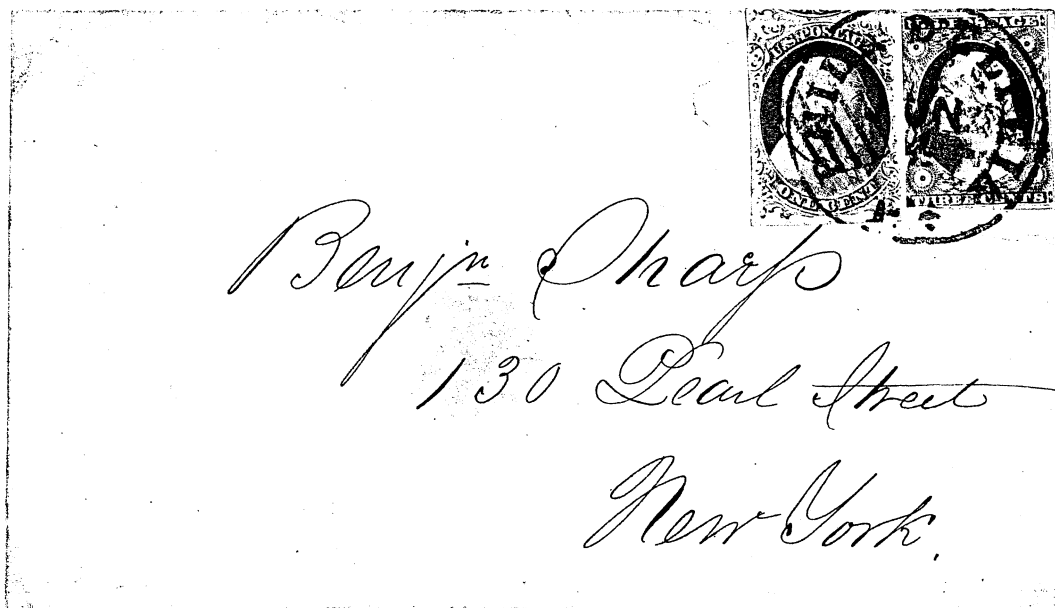 U.S. POSTAGE
ONE CENT
THREE CENTS
Benjn Sharp
130 Pearl Street
New York.